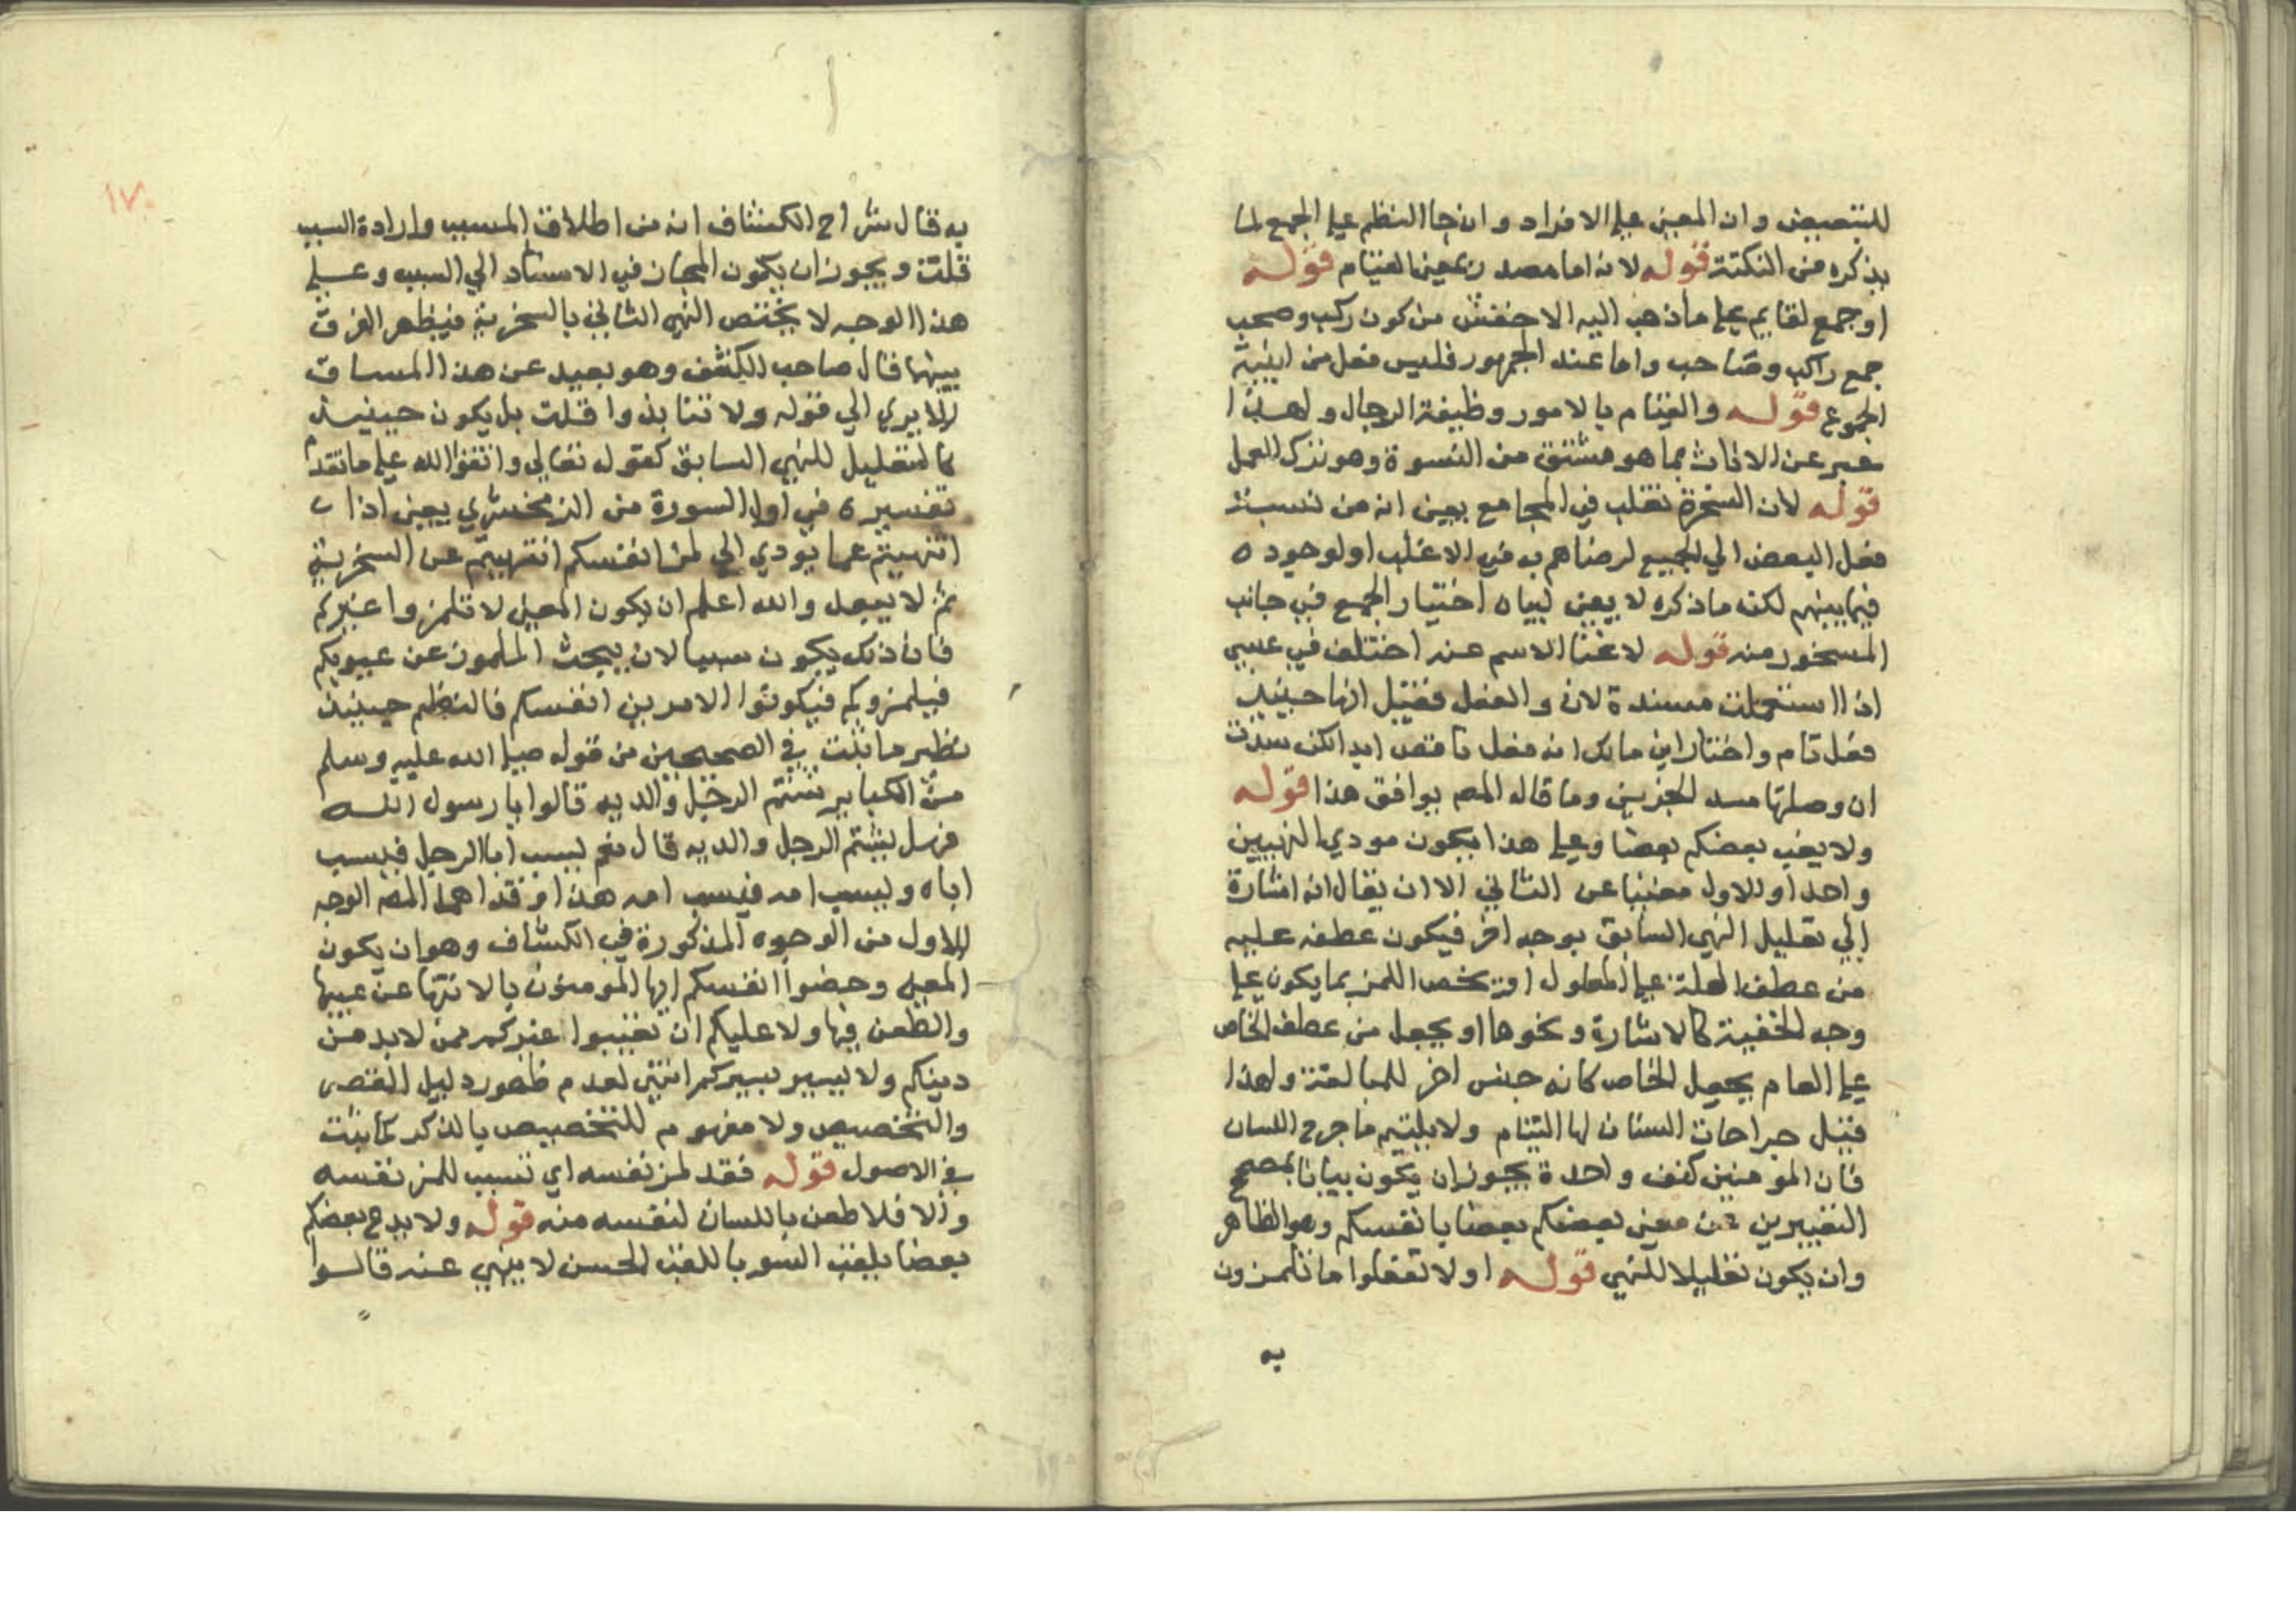 للتبعيض وان المعنى على الافراد وان جا النظم على الجمع لما
يذكره من النكتة قوله لانه اما مصدر بمعنى القيام قوله
او جمع لقايم على ما ذهب اليه الاخفش من كون ركب وصحب
جمع راكب وصاحب واما عند الجمهور فليس فعل من ابنية
الجموع قوله والقيام بالامور وظيفة الرجال ولهذا
عبر عن الاناث بما هو مشتق من النسوة وهو ترك العمل
قوله لان السخرة تغلب في المجامع يعني انه من نسبة
فعل البعض الي الجميع لرضاهم به في الاغلب او لوجوده
فيما بينهم لكنه ما ذكره لا يعني لبيان اختيار الجمع في جانب
المسخور منه قوله لاغنا الاسم عنه اختلف في عسى
اذا استعملت مسندة لان والفعل فقيل انها حينيذ
فعل تام واختار ابن مالك انه فعل ناقص ابدا لكن سدت
ان وصلتها مسد الجزين وما قاله المص يوافق هذا قوله
ولا يغب بعضكم بعضا وعلى هذا يكون مودى النهيين
واحدا والاول مغنيا عن الثاني الا ان يقال انه اشارة
الي تعليل النهي السابق بوجه اخر فيكون عطفه عليه
من عطف العلة على المعلول او يخص اللمز بما يكون على
وجه الخفية كالاشارة ونحوها او يجعل من عطف الخاص
على العام يجعل الخاص كانه جنس اخر للمبالغة ولهذا
قيل جراحات السنان لها التيام ولا يلتيم ما جرح اللسان
فان المومنين كنفس واحدة يجوز ان يكون بيانا لمصحح
التعبيرين عن معنى بعضكم بعضا بانفسكم وهو الظاهر
وان يكون تعليلا للنهي قوله او لا تفعلوا ما تلمزون
به
١٧٠
به قال شراح الكشاف انه من اطلاق المسبب وارادة السبب
قلت ويجوز ان يكون المجاز في الاسناد الي السبب وعلى
هذا الوجه لا يختص النهي الثاني بالسخرية فيظهر الفرق
بينهما قال صاحب الكشف وهو بعيد عن هذا المساق
الا يري الي قوله ولا تنابذوا قلت بل يكون حينيذ
كالتعليل للنهي السابق كقوله تعالي واتقوا الله على ما تقدم
تفسيره في اول السورة من الزمخشري يعني اذا
انتهيتم عما يودي الي لمز انفسكم انتهيتم عن السخرية
ثم لا يبعد والله اعلم ان يكون المعنى لا تلمزوا غيركم
فان ذلك يكون سببا لان يبحث الملموز عن عيوبكم
فيلمزوكم فيكونوا الامرين انفسكم فالنظم حينيذ
نظير ما ثبت في الصحيحين من قوله صلى الله عليه وسلم
من الكباير شتم الرجل والديه قالوا يا رسول الله
وهل يشتم الرجل والديه قال نعم يسب ابا الرجل فيسب
اباه ويسب امه فيسب امه هذا وقد اهمل المص الوجه
الاول من الوجوه المذكورة في الكشاف وهو ان يكون
المعنى وخصوا انفسكم ايها المومنون بالانتها عن عيبها
والطعن فيها ولا عليكم ان تعيبوا غيركم ممن لا يدين
دينكم ولا يسير بسيركم انتهى لعدم ظهور دليل القصر
والتخصيص ولا مفهوم للتخصيص بالذكر كما ثبت
في الاصول قوله فقد لمز نفسه اي تسبب للمز نفسه
والا فلا طعن باللسان لنفسه منه قوله ولا يدع بعضكم
بعضا بلقب السو باللقب الحسن لا ينهي عنه قالوا